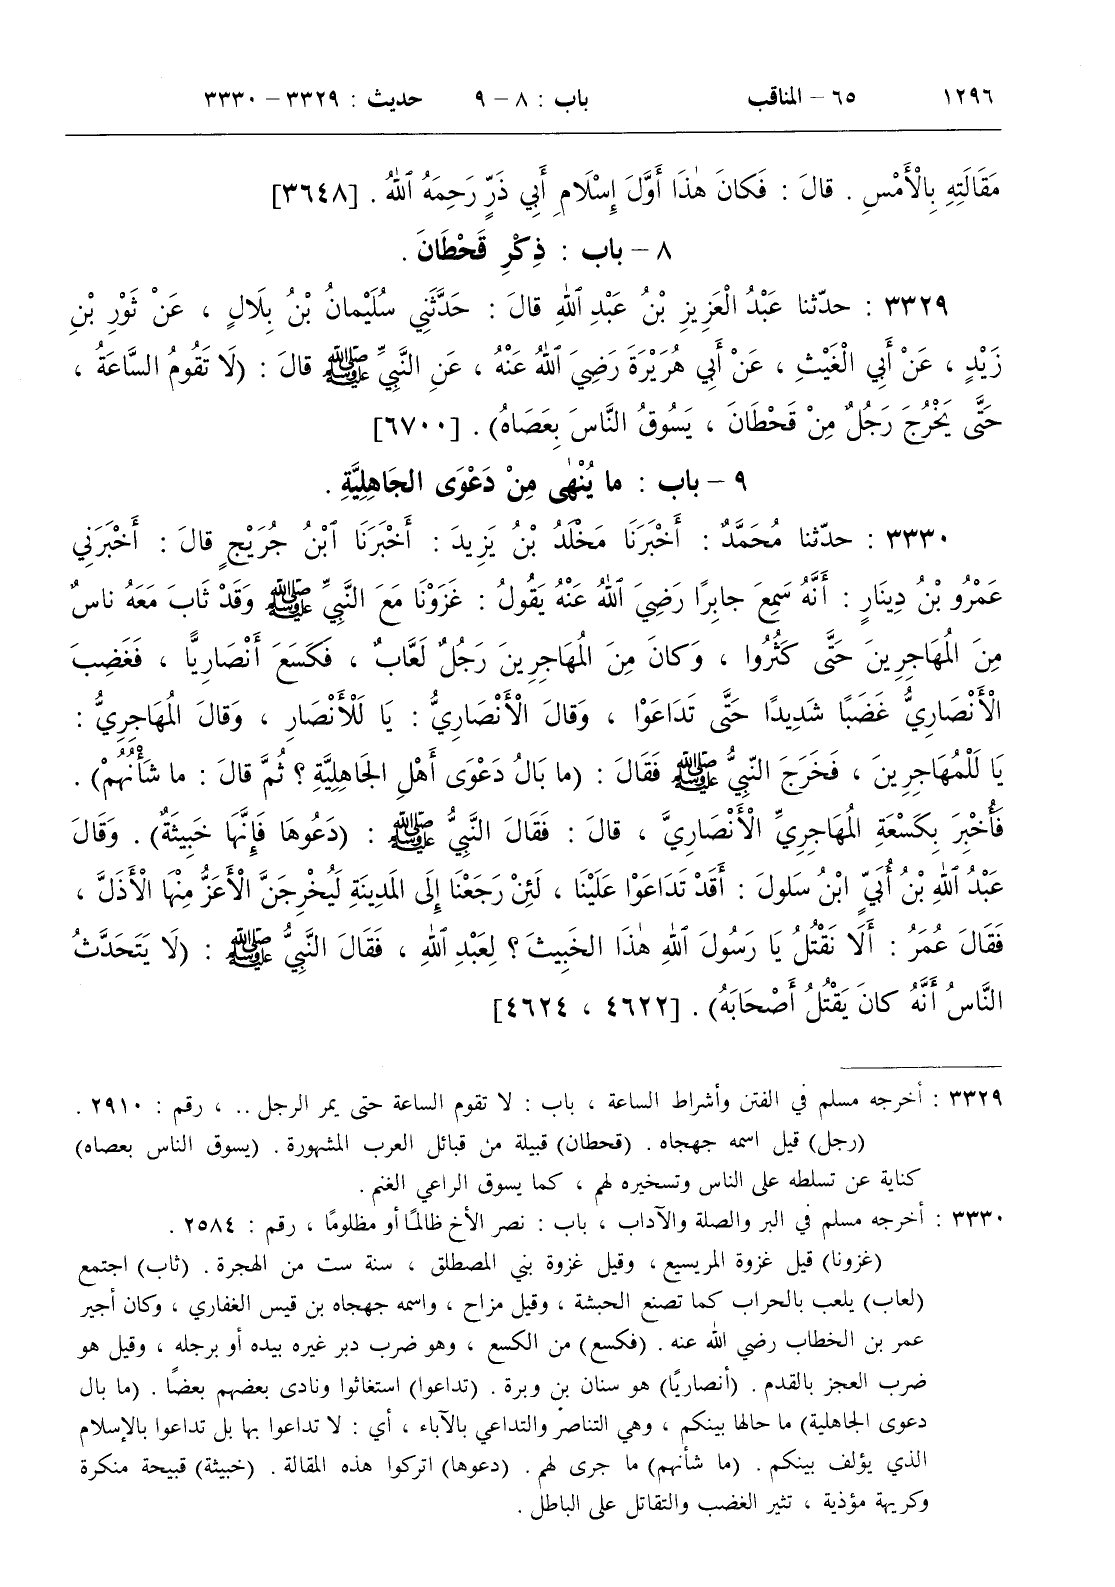 ١٢٩٦ ٦٥ – المناقب باب : ٨ – ٩ حديث : ٣٣٢٩ – ٣٣٣٠
مَقَالَتِهِ بِالْأَمْسِ . قالَ : فَكانَ هٰذَا أَوَّلَ إِسْلَامِ أَبِي ذَرٍّ رَحِمَهُ ٱللهُ . [٣٦٤٨]
٨ – باب : ذِكْرِ قَحْطَانَ .
٣٣٢٩ : حدّثنا عَبْدُ الْعَزِيزِ بْنُ عَبْدِ ٱللهِ قالَ : حَدَّثَنِي سُلَيْمانُ بْنُ بِلَالٍ ، عَنْ ثَوْرِ بْنِ
زَيْدٍ ، عَنْ أَبِي الْغَيْثِ ، عَنْ أَبِي هُرَيْرَةَ رَضِيَ ٱللهُ عَنْهُ ، عَنِ النَّبِيِّ ﷺ قالَ : (لَا تَقُومُ السَّاعَةُ ،
حَتَّى يَخْرُجَ رَجُلٌ مِنْ قَحْطَانَ ، يَسُوقُ النَّاسَ بِعَصَاهُ) . [٦٧٠٠]
٩ – باب : ما يُنْهٰى مِنْ دَعْوَى الجَاهِلِيَّةِ .
٣٣٣٠ : حدّثنا مُحَمَّدٌ : أَخْبَرَنَا مَخْلَدُ بْنُ يَزِيدَ : أَخْبَرَنَا ٱبْنُ جُرَيْجٍ قالَ : أَخْبَرَنِي
عَمْرُو بْنُ دِينَارٍ : أَنَّهُ سَمِعَ جابِرًا رَضِيَ ٱللهُ عَنْهُ يَقُولُ : غَزَوْنَا مَعَ النَّبِيِّ ﷺ وَقَدْ ثَابَ مَعَهُ ناسٌ
مِنَ الْمُهَاجِرِينَ حَتَّى كَثُرُوا ، وَكانَ مِنَ الْمُهَاجِرِينَ رَجُلٌ لَعَّابٌ ، فَكَسَعَ أَنْصَارِيًّا ، فَغَضِبَ
الْأَنْصَارِيُّ غَضَبًا شَدِيدًا حَتَّى تَدَاعَوْا ، وَقالَ الْأَنْصَارِيُّ : يَا لَلْأَنْصَارِ ، وَقالَ الْمُهَاجِرِيُّ :
يَا لَلْمُهَاجِرِينَ ، فَخَرَجَ النَّبِيُّ ﷺ فَقَالَ : (ما بَالُ دَعْوَى أَهْلِ الجَاهِلِيَّةِ ؟ ثُمَّ قالَ : ما شَأْنُهُمْ) .
فَأُخْبِرَ بِكَسْعَةِ الْمُهَاجِرِيِّ الْأَنْصَارِيَّ ، قالَ : فَقَالَ النَّبِيُّ ﷺ : (دَعُوهَا فَإِنَّهَا خَبِيثَةٌ) . وَقَالَ
عَبْدُ ٱللهِ بْنُ أُبَيٍّ ابْنُ سَلولَ : أَقَدْ تَدَاعَوْا عَلَيْنَا ، لَئِنْ رَجَعْنَا إِلَى الْمَدِينَةِ لَيُخْرِجَنَّ الْأَعَزُّ مِنْهَا الْأَذَلَّ ،
فَقَالَ عُمَرُ : أَلَا نَقْتُلُ يَا رَسُولَ ٱللهِ هٰذَا الخَبِيثَ ؟ لِعَبْدِ ٱللهِ ، فَقَالَ النَّبِيُّ ﷺ : (لَا يَتَحَدَّثُ
النَّاسُ أَنَّهُ كانَ يَقْتُلُ أَصْحَابَهُ) . [٤٦٢٢ ، ٤٦٢٤]
٣٣٢٩ : أخرجه مسلم في الفتن وأشراط الساعة ، باب : لا تقوم الساعة حتى يمر الرجل .. ، رقم : ٢٩١٠ .
(رجل) قيل اسمه جهجاه . (قحطان) قبيلة من قبائل العرب المشهورة . (يسوق الناس بعصاه)
كناية عن تسلطه على الناس وتسخيره لهم ، كما يسوق الراعي الغنم .
٣٣٣٠ : أخرجه مسلم في البر والصلة والآداب ، باب : نصر الأخ ظالمًا أو مظلومًا ، رقم : ٢٥٨٤ .
(غزونا) قيل غزوة المريسيع ، وقيل غزوة بني المصطلق ، سنة ست من الهجرة . (ثاب) اجتمع
(لعاب) يلعب بالحراب كما تصنع الحبشة ، وقيل مزاح ، واسمه جهجاه بن قيس الغفاري ، وكان أجير
عمر بن الخطاب رضي الله عنه . (فكسع) من الكسع ، وهو ضرب دبر غيره بيده أو برجله ، وقيل هو
ضرب العجز بالقدم . (أنصاريًا) هو سنان بن وبرة . (تداعوا) استغاثوا ونادى بعضهم بعضًا . (ما بال
دعوى الجاهلية) ما حالها بينكم ، وهي التناصر والتداعي بالآباء ، أي : لا تداعوا بها بل تداعوا بالإسلام
الذي يؤلف بينكم . (ما شأنهم) ما جرى لهم . (دعوها) اتركوا هذه المقالة . (خبيثة) قبيحة منكرة
وكريهة مؤذية ، تثير الغضب والتقاتل على الباطل .